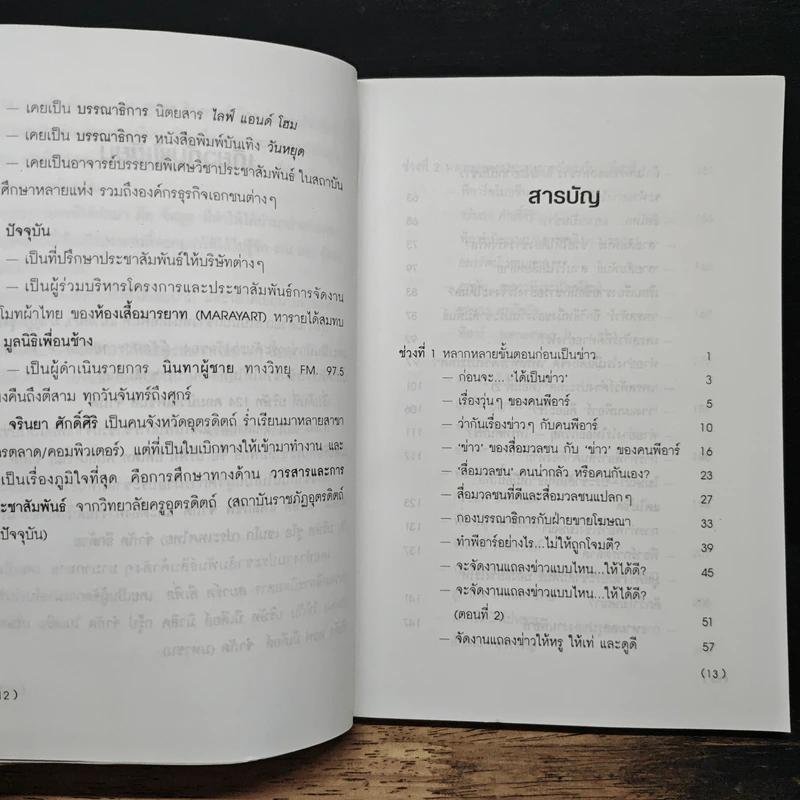 – เคยเป็น บรรณาธิการ นิตยสาร ไลฟ์ แอนด์ โฮม
– เคยเป็น บรรณาธิการ หนังสือพิมพ์บันเทิง วันหยุด
– เคยเป็นอาจารย์บรรยายพิเศษวิชาประชาสัมพันธ์ ในสถาบัน
ศึกษาหลายแห่ง รวมถึงองค์กรธุรกิจเอกชนต่างๆ
ปัจจุบัน
– เป็นที่ปรึกษาประชาสัมพันธ์ให้บริษัทต่างๆ
– เป็นผู้ร่วมบริหารโครงการและประชาสัมพันธ์การจัดงาน
โมทผ้าไทย ของห้องเสื้อมารยาท (MARAYART) หารายได้สมทบ
มูลนิธิเพื่อนช้าง
– เป็นผู้ดำเนินรายการ นินทาผู้ชาย ทางวิทยุ FM. 97.5
งคืนถึงตีสาม ทุกวันจันทร์ถึงศุกร์
จรินยา ศักดิ์ศิริ เป็นคนจังหวัดอุตรดิตถ์ ร่ำเรียนมาหลายสาขา
ารตลาด/คอมพิวเตอร์) แต่ที่เป็นใบเบิกทางให้เข้ามาทำงาน และ
เป็นเรื่องภูมิใจที่สุด คือการศึกษาทางด้าน วารสารและการ
ะชาสัมพันธ์ จากวิทยาลัยครูอุตรดิตถ์ (สถาบันราชภัฏอุตรดิตถ์
ปัจจุบัน)
12)
สารบัญ
ช่วงที่ 1 หลากหลายขั้นตอนก่อนเป็นข่าว 1
– ก่อนจะ... 'ได้เป็นข่าว' 3
– เรื่องวุ่นๆ ของคนพีอาร์ 5
– ว่ากันเรื่องข่าวๆ กับคนพีอาร์ 10
– 'ข่าว' ของสื่อมวลชน กับ 'ข่าว' ของคนพีอาร์ 16
– 'สื่อมวลชน' คนน่ากลัว หรือคนกันเอง? 23
– สื่อมวลชนที่ดีและสื่อมวลชนแปลกๆ 27
– กองบรรณาธิการกับฝ่ายขายโฆษณา 33
– ทำพีอาร์อย่างไร...ไม่ให้ถูกโจมตี? 39
– จะจัดงานแถลงข่าวแบบไหน...ให้ได้ดี? 45
– จะจัดงานแถลงข่าวแบบไหน...ให้ได้ดี?
(ตอนที่ 2) 51
– จัดงานแถลงข่าวให้หรู ให้เท่ และดูดี 57
(13)